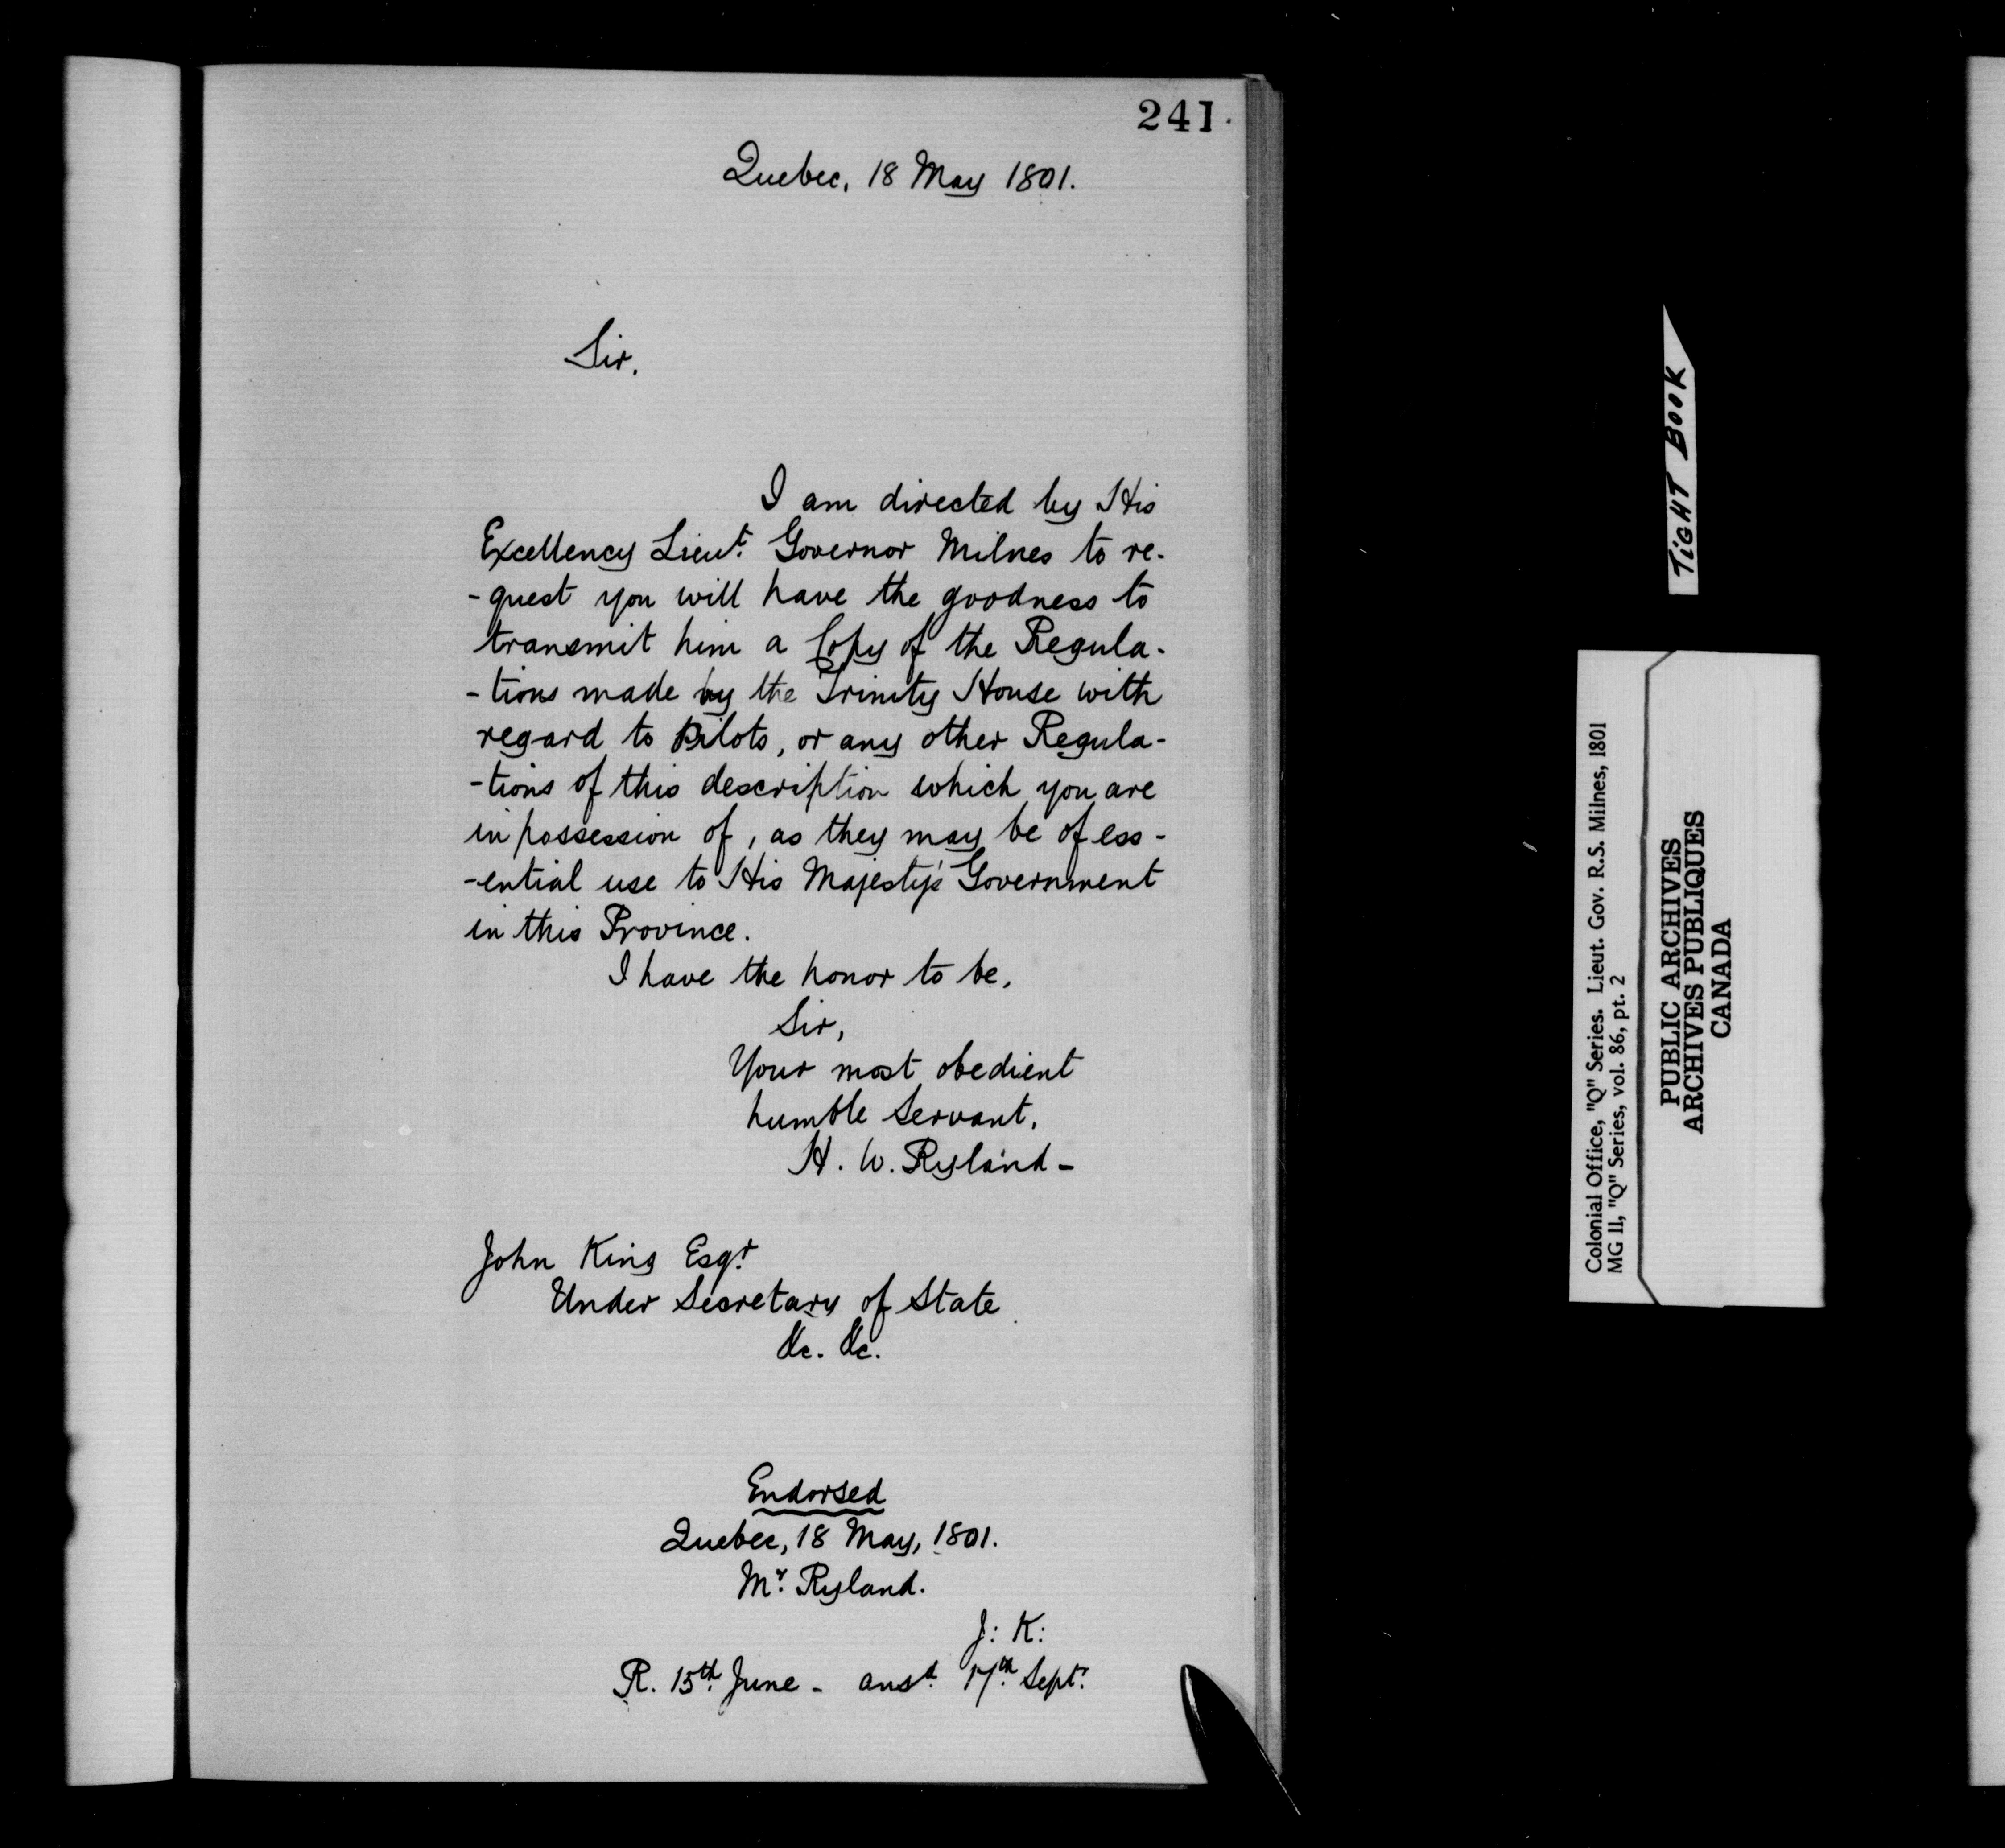 241.
Quebec, 18 May 1801.
Sir.
I am directed by His
Excellency Lieut. Governor Milnes to re-
-quest you will have the goodness to
transmit him a Copy of the Regula-
-tions made by the Trinity House with
regard to Pilots, or any other Regula-
-tions of this description which you are
in possession of, as they may be of ess-
-ential use to His Majesty's Government
in this Province.
I have the honor to be,
Sir,
Your most obedient
humble Servant,
H. W. Ryland-
John King Esqr.
Under Secretary of State
&c. &c.
Endorsed
Quebec, 18 May, 1801.
Mr. Ryland.
J: K:
R. 15th. June - ansd. 17th. Sept.
TIGHT BOOK
Colonial Office, "Q" Series. Lieut. Gov. R.S. Milnes, 1801
MG 11, "Q" Series, vol. 86, pt. 2
PUBLIC ARCHIVES
ARCHIVES PUBLIQUES
CANADA